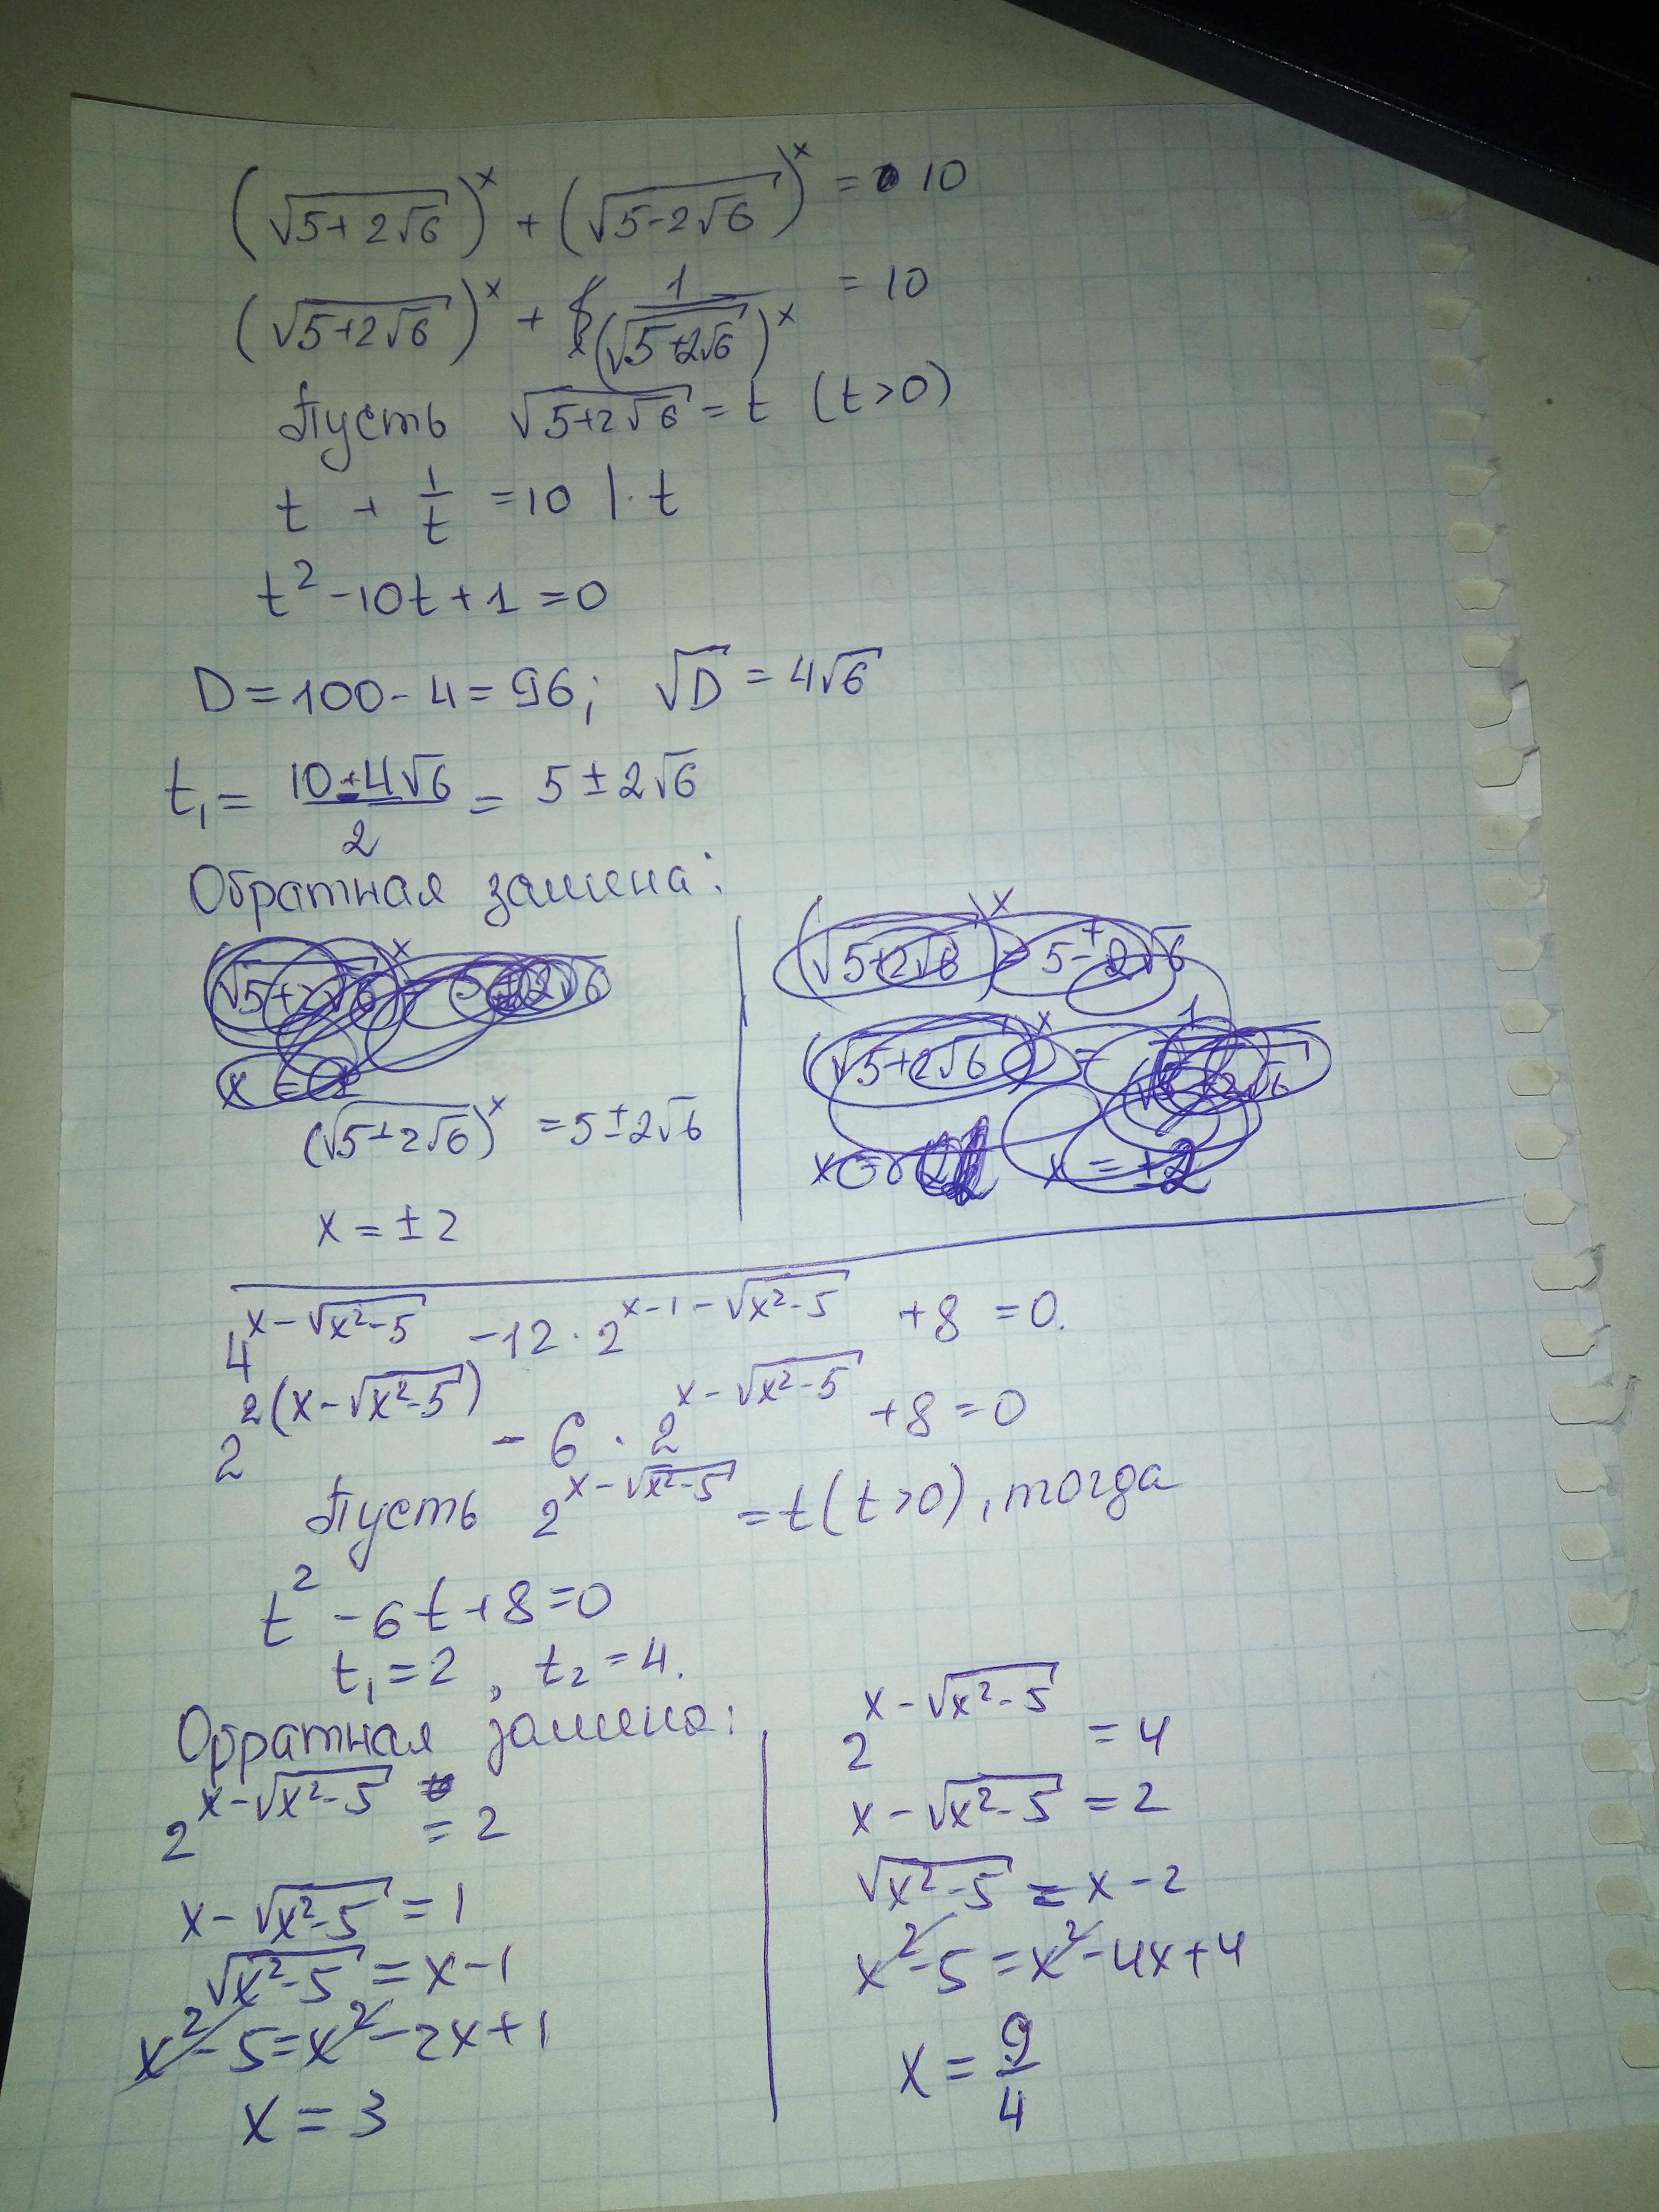 (√(5+2√6))^x + (√(5-2√6))^x = 10
(√(5+2√6))^x + 1/(√(5+2√6))^x = 10
Пусть √(5+2√6) = t (t>0)
t + 1/t = 10 |· t
t² - 10t + 1 = 0
D = 100 - 4 = 96; √D = 4√6
t₁ = (10 ± 4√6)/2 = 5 ± 2√6
Обратная замена:
(√(5±2√6))^x = 5 ± 2√6
x = ± 2
4^(x-√(x²-5)) - 12 · 2^(x-1-√(x²-5)) + 8 = 0.
2^(2(x-√(x²-5))) - 6 · 2^(x-√(x²-5)) + 8 = 0
Пусть 2^(x-√(x²-5)) = t (t>0), тогда
t² - 6t + 8 = 0
t₁ = 2, t₂ = 4.
Обратная замена:
2^(x-√(x²-5)) = 2
x - √(x²-5) = 1
√(x²-5) = x - 1
x² - 5 = x² - 2x + 1
x = 3
2^(x-√(x²-5)) = 4
x - √(x²-5) = 2
√(x²-5) = x - 2
x² - 5 = x² - 4x + 4
x = 9/4